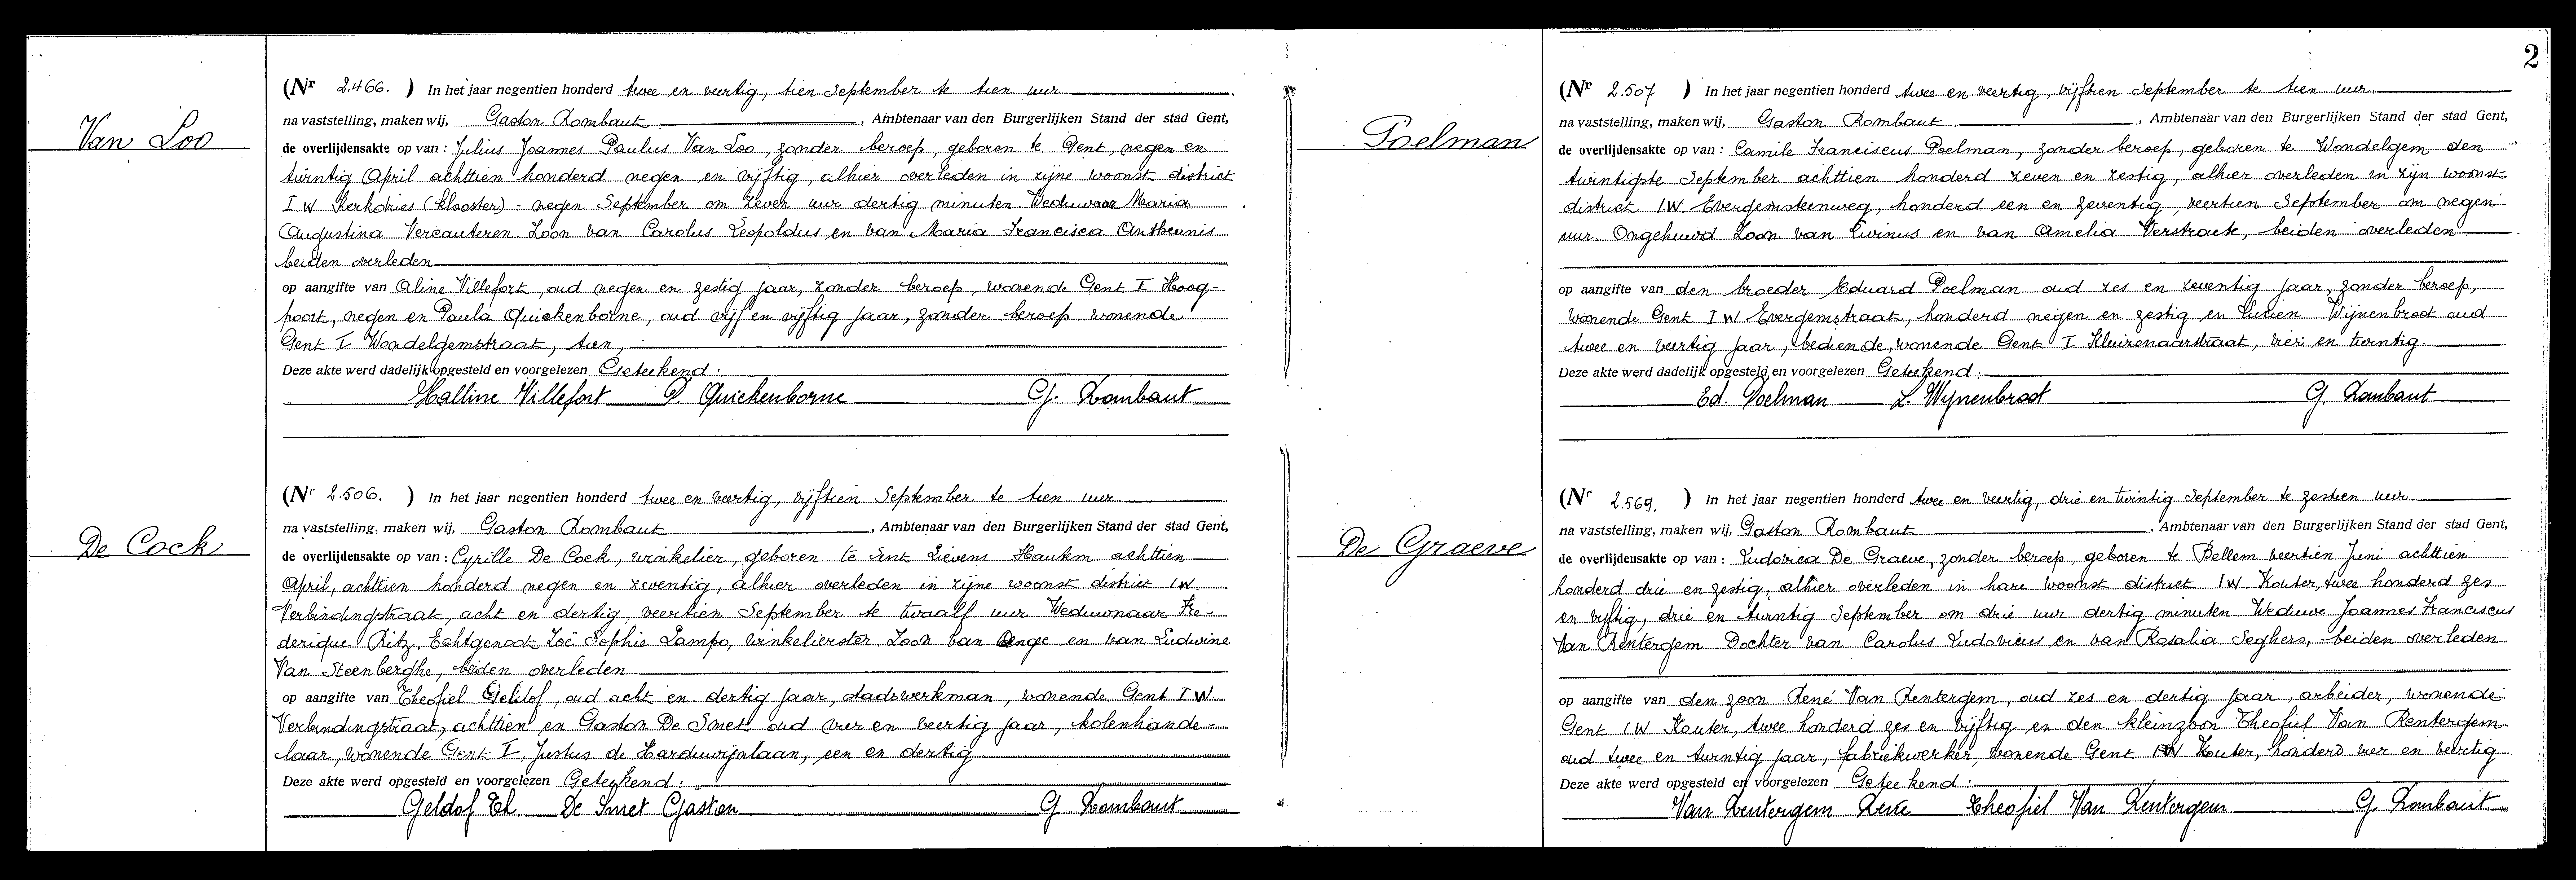 2
Van Loo
(Nr 2.466. ) In het jaar negentien honderd twee en veertig, tien September te tien uur
na vaststelling, maken wij, Gaston Rombaut, Ambtenaar van den Burgerlijken Stand der stad Gent,
de overlijdensakte op van : Julius Joannes Paulus Van Loo, zonder beroep, geboren te Gent, negen en
twintig April achttien honderd negen en vijftig, alhier overleden in zijne woonst district
I W Kerkdries (klooster) - negen September om zeven uur dertig minuten Weduwaar Maria
Augustina Vercauteren Zoon van Carolus Leopoldus en van Maria Francisca Antheunis
beiden overleden
op aangifte van Aline Villefort, oud negen en zestig jaar, zonder beroep, wonende Gent I Hoog-
poort, negen en Paula Quickenborne, oud vijf en vijftig jaar, zonder beroep wonende
Gent I Wondelgemstraat, tien,
Deze akte werd dadelijk opgesteld en voorgelezen Geteekend :
Halline Villefort P. Quickenborne G. Rombaut
De Cock
(Nr 2.506. ) In het jaar negentien honderd twee en veertig, vijftien September te tien uur
na vaststelling, maken wij, Gaston Rombaut, Ambtenaar van den Burgerlijken Stand der stad Gent,
de overlijdensakte op van : Cyrille De Cock, winkelier, geboren te Sint Lievens Hautem achttien
April, achttien honderd negen en zeventig, alhier overleden in zijne woonst district I W
Verbindingstraat, acht en dertig, veertien September te twaalf uur Weduwnaar Fre-
derique Ritz, Echtgenoot Zoë Sophie Lampo, winkelierster Zoon van Ange en van Ludwine
Van Steenberghe, beiden overleden
op aangifte van Theofiel Geldof, oud acht en dertig jaar, stadswerkman, wonende Gent I W
Verbindingstraat, achttien en Gaston De Smet oud vier en veertig jaar, kolenhande-
laar, wonende Gent I, Justus de Harduwijnlaan, een en dertig
Deze akte werd opgesteld en voorgelezen Geteekend :
Geldof Th. De Smet Gaston G Rombaut
Poelman
(Nr 2.507 ) In het jaar negentien honderd twee en veertig, vijftien September te tien uur
na vaststelling, maken wij, Gaston Rombaut, Ambtenaar van den Burgerlijken Stand der stad Gent,
de overlijdensakte op van : Camile Franciscus Poelman, zonder beroep, geboren te Wondelgem den
twintigste September achttien honderd zeven en zestig, alhier overleden in zijn woonst
district I.W Evergemsteenweg, honderd een en zeventig, veertien September om negen
uur Ongehuwd Zoon van Livinus en van Amelia Verstraete, beiden overleden
op aangifte van den broeder Eduard Poelman oud zes en zeventig jaar, zonder beroep,
wonende Gent I W Evergemstraat, honderd negen en zestig en Lucien Wijnenbroot oud
twee en veertig jaar, bediende, wonende Gent I Kluizenaarstraat, vier en twintig
Deze akte werd dadelijk opgesteld en voorgelezen Geteekend :
Ed. Poelman L. Wijnenbroot G. Rombaut
De Graeve
(Nr 2.569. ) In het jaar negentien honderd twee en veertig, drie en twintig September te zestien uur
na vaststelling, maken wij, Gaston Rombaut, Ambtenaar van den Burgerlijken Stand der stad Gent,
de overlijdensakte op van : Ludovica De Graeve, zonder beroep, geboren te Bellem veertien Juni achttien
honderd drie en zestig, alhier overleden in hare woonst district I W Kouter, twee honderd zes
en vijftig, drie en twintig September om drie uur dertig minuten Weduwe Joannes Franciscus
Van Renterghem Dochter van Carolus Ludovicus en van Rosalia Seghers, beiden overleden
op aangifte van den zoon René Van Rentergem, oud zes en dertig jaar, arbeider, wonende
Gent I W Kouter, twee honderd zes en vijftig en den kleinzoon Theofiel Van Rentergem
oud twee en twintig jaar, fabriekwerker, wonende Gent I W Kouter, honderd vier en veertig
Deze akte werd opgesteld en voorgelezen Geteekend :
Van Rentergem Rene Theofiel Van Rentergem G Rombaut